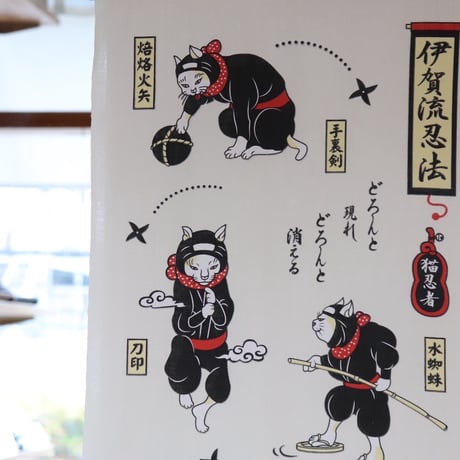 伊賀流忍法
猫忍者
焙烙火矢
手裏剣
どろんと
現れ
どろんと
消える
刀印
水蜘蛛